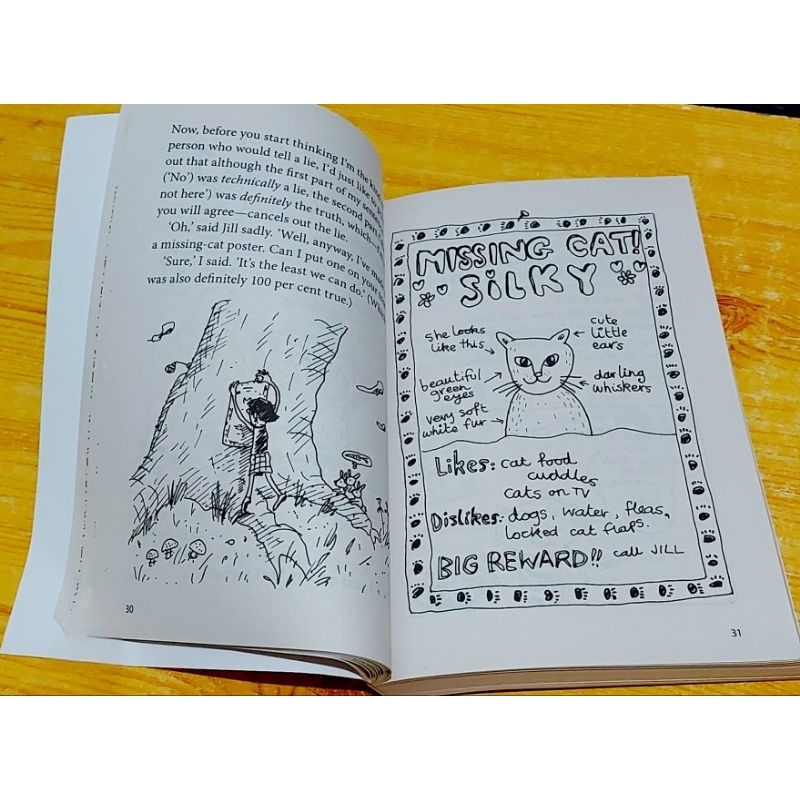 Now, before you start thinking I'm the kind
person who would tell a lie, I'd just like to
out that although the first part of my
('No') was technically a lie, the second part
not here') was definitely the truth, which
you will agree—cancels out the lie.
'Oh,' said Jill sadly. 'Well, anyway, I've made
a missing-cat poster. Can I put one on your
'Sure,' I said. 'It's the least we can do.'
was also definitely 100 per cent true.)
30
MISSING CAT!
SILKY
she looks
like this
cute
little
ears
beautiful
green
eyes
darling
whiskers
very soft
white fur
Likes: cat food
cuddles
cats on TV
Dislikes: dogs, water, fleas,
locked cat flaps.
BIG REWARD!! call JILL
31